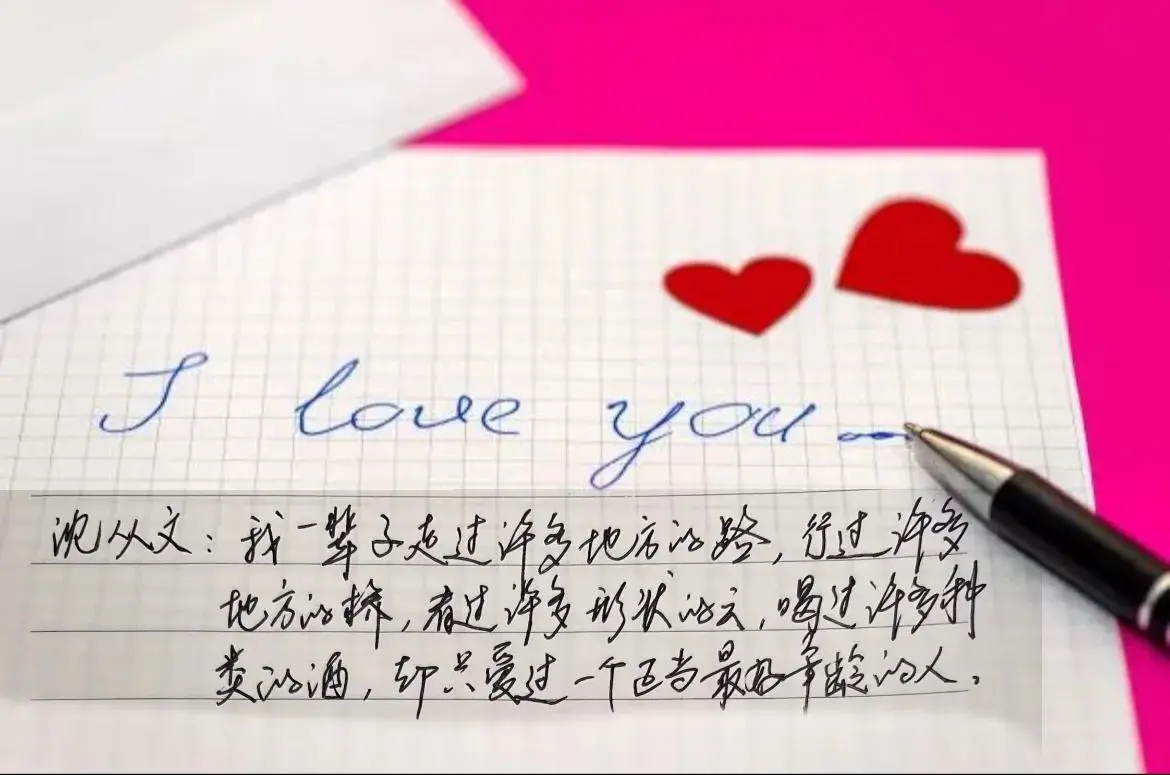 I love you...
沈从文：我一辈子走过许多地方的路，行过许多
地方的桥，看过许多形状的云，喝过许多种
类的酒，却只爱过一个正当最好年龄的人。